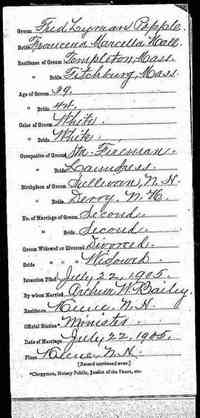 Groom Fred Lyman Popple.
Bride Francena Marcella Hall.
Residence of Groom Templeton, Mass.
" Bride Fitchburg, Mass.
Age of Groom 39.
" Bride 42.
Color of Groom White.
" Bride White.
Occupation of Groom Sta. Fireman.
" Bride Laundress.
Birthplace of Groom Sullivan, N.H.
" Bride Derry, N.H.
No. of Marriage of Groom Second.
" " Bride Second.
Groom Widowed or Divorced Divorced
Bride " " Widowed.
Intention Filed July 22, 1905.
By whom Married Arthur W. Bailey.
Residence Keene N.H.
Official Station* Minister
Date of Marriage July 22, 1905.
Place Keene N.H.
[Record continued over.]
*Clergyman, Notary Public, Justice of the Peace, etc.